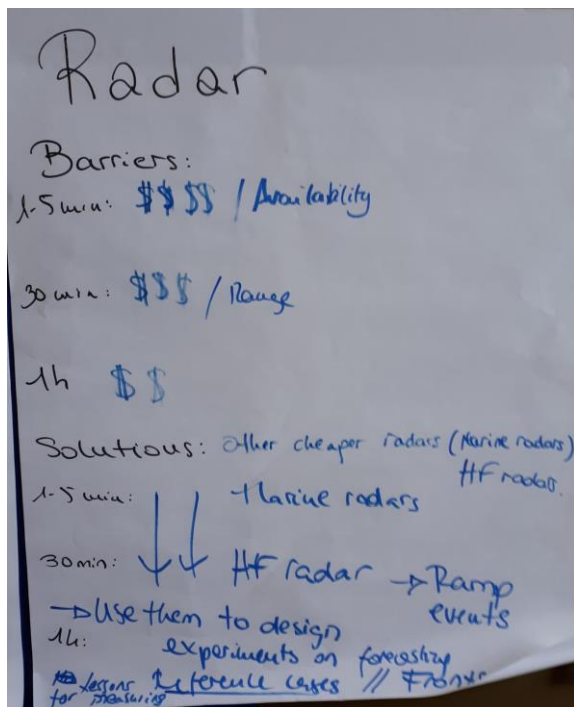 Radar
Barriers:
1-5 min: $$$$ / Availability
30 min: $$$ / Range
1h $$
Solutions: other cheaper radars (Marine radars)
HF radars.
1-5 min: Marine radars
30min: HF radar → Ramp
events
→ Use them to design
1h: experiments on forecasting
lessons reference cases // Fronts
for measuring